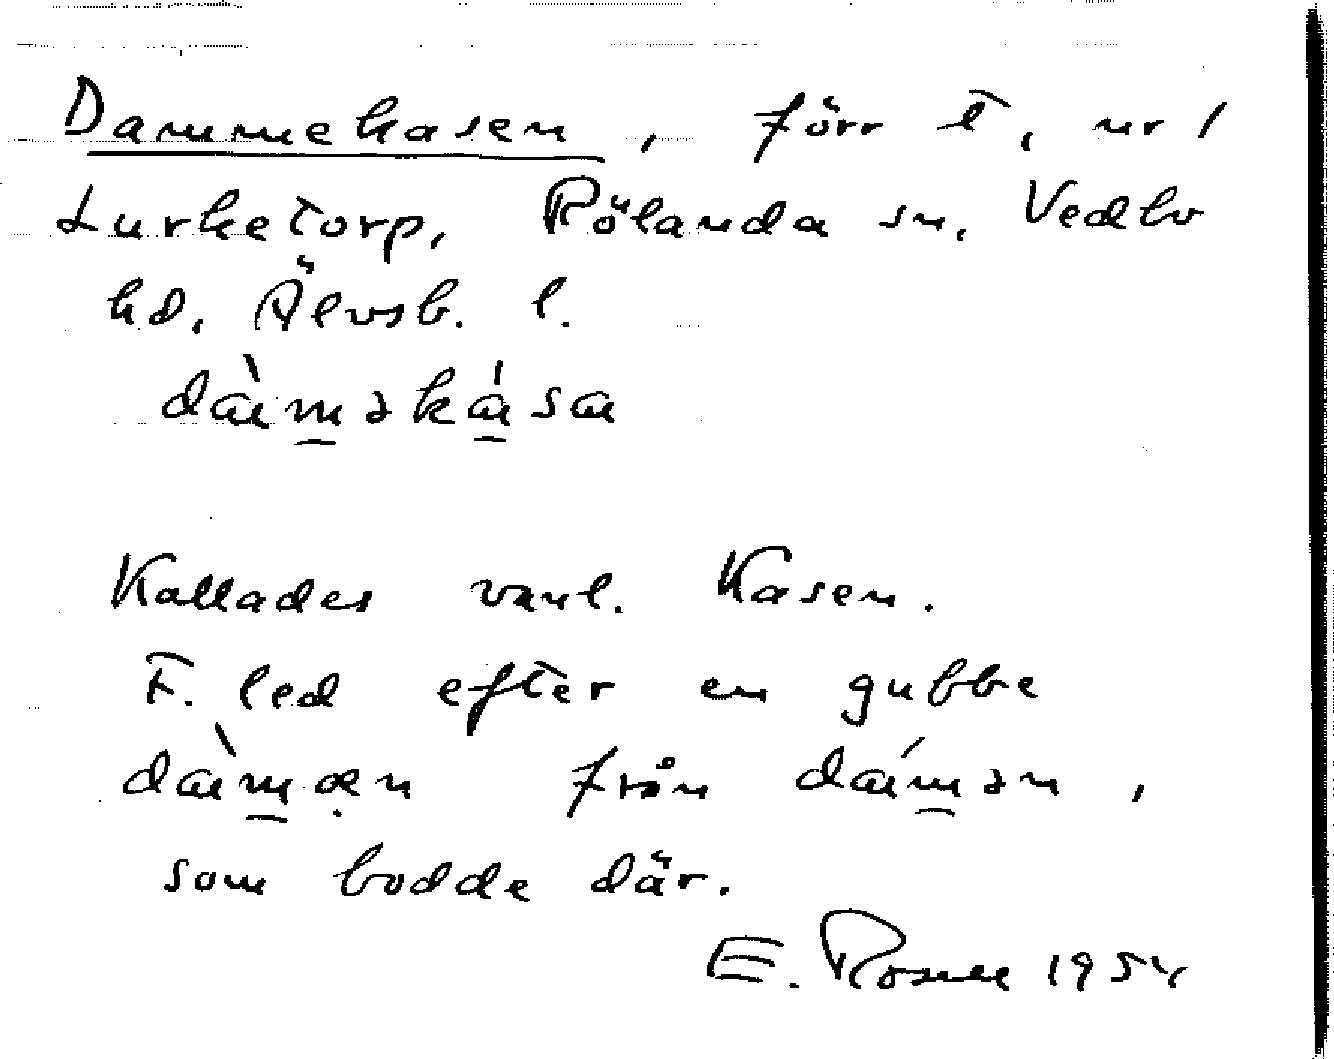 Dammekasen, förr t, nr 1
Lurketorp, Rölanda sn, Vedbo
hd, Älvsb. l.
dàm̲əkása
Kallades vanl. Kasen.
F. led efter en gubbe
dàm̲æn från dám̲ən,
som bodde där.
E. 1954